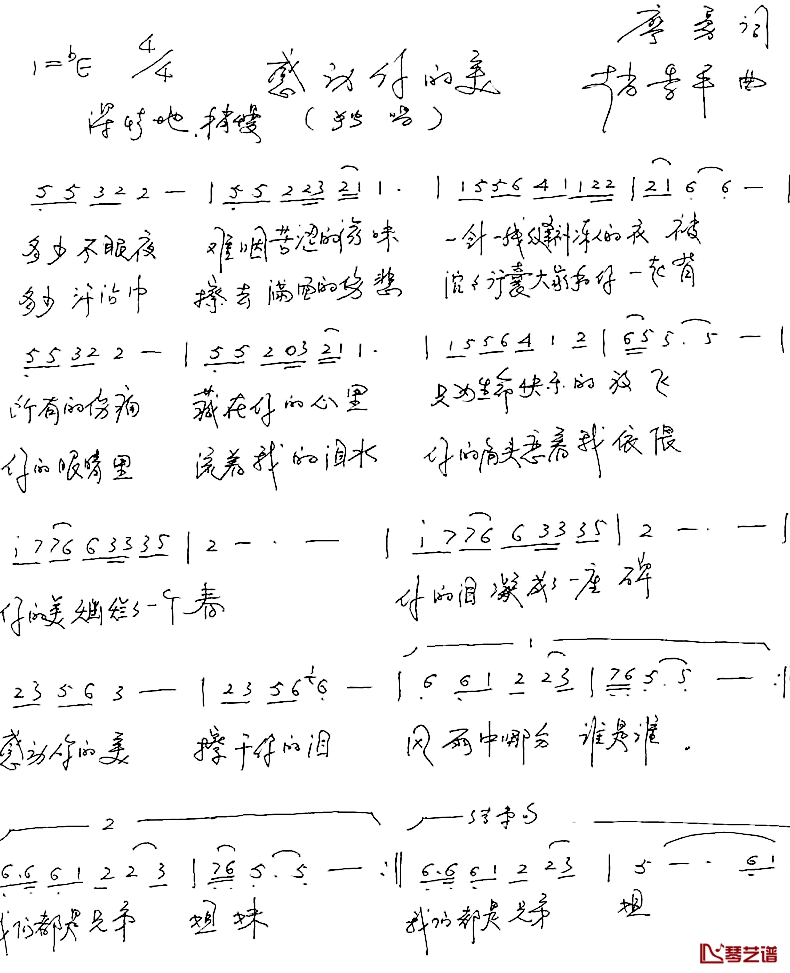 1=ᵇE 4/4 感动你的美 廖勇词
深情地.稍慢 (独唱) 李平曲
5 5 3 2 2 — | 5 5 2 2 3 2 1 1 . | 1 5 5 6 4 1 1 2 2 | 2 1 6 6 — |
多少不眠夜 难咽苦涩的滋味 一针一线缝制深的衣被
多少汗沾巾 擦去满面的伤悲 沉沉行囊大家和你一起背
5 5 3 2 2 — | 5 5 2 0 3 2 1 1 . | 1 5 5 6 4 1 2 | 6 5 5 . 5 — |
所有的伤痛 藏在你的心里 只为生命快乐的放飞
你的眼睛里 流着我的泪水 你的肩头恋着我依偎
i 7 7 6 6 3 3 3 5 | 2 — · — | i 7 7 6 6 3 3 3 5 | 2 — · — |
你的美灿烂了一个春 你的泪凝成了一座碑
1
2 3 5 6 3 — | 2 3 5 6 6 — | 6 6 1 2 2 3 | 7 6 5 . 5 — :||
感动你的美 擦干你的泪 风雨中哪分 谁是谁。
2 结束句
6 . 6 6 1 2 2 3 | 7 6 5 . 5 — :|| 6 . 6 6 1 2 2 3 | 5 — · 6 1
我们都是兄弟 姐妹 我们都是兄弟 姐
琴艺谱